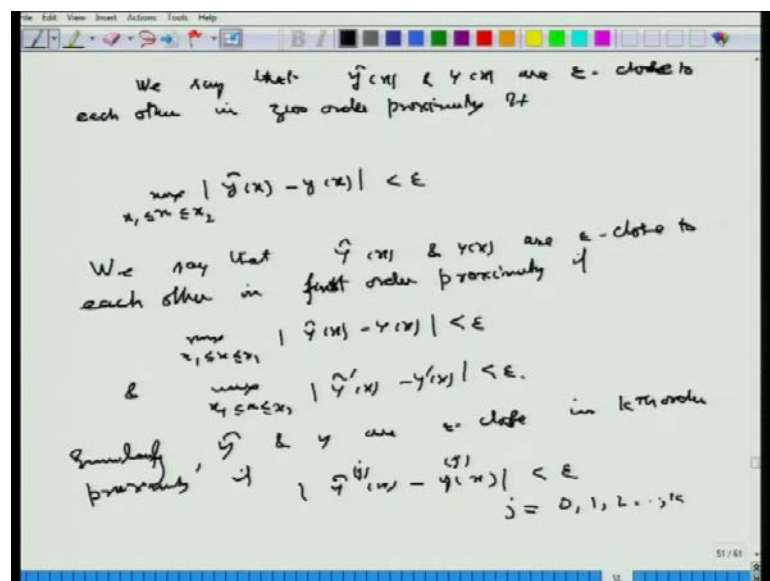 File Edit View Insert Actions Tools Help
We say that ỹ(x) & y(x) are ε-close to
each other in zero order proximity if
max | ỹ(x) - y(x) | < ε
x₁ ≤ x ≤ x₂
We say that ỹ(x) & y(x) are ε-close to
each other in first order proximity if
max | ỹ(x) - y(x) | < ε
x₁ ≤ x ≤ x₂
& max | ỹ'(x) - y'(x) | < ε.
x₁ ≤ x ≤ x₂
Similarly ỹ & y are ε-close in kth order
proximity, if | ỹ⁽ʲ⁾(x) - y⁽ʲ⁾(x) | < ε
j = 0, 1, 2..., k
51 / 61